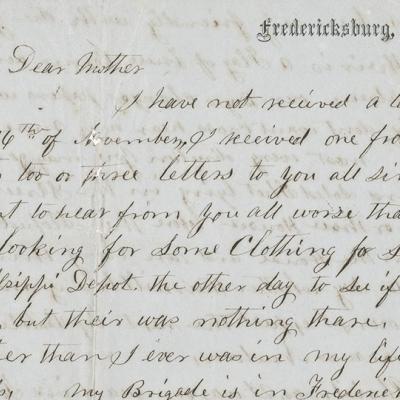 Fredericksburg,
Dear Mother
I have not received a
6th of November, I received one
too or three letters to you all
to hear from you all worse
looking for some Clothing for
Depot. the other day to see if
but their was nothing thare.
than I ever was in my life
my Brigade is in